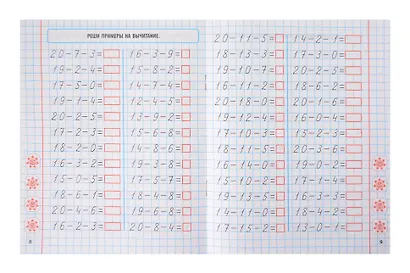 РЕШИ ПРИМЕРЫ НА ВЫЧИТАНИЕ.
20-7-3=
19-2-4=
17-5-0=
19-1-4=
20-2-5=
17-2-3=
18-2-0=
16-3-2=
15-0-5=
18-6-1=
20-4-6=
16-2-3=
16-3-9=
15-4-2=
14-7-4=
12-4-5=
13-9-2=
15-8-2=
14-5-8=
19-3-8=
17-5-7=
18-4-8=
19-6-8=
20-8-4=
8
20-11-5=
18-13-3=
19-10-7=
18-16-2=
20-18-0=
17-10-4=
13-10-3=
19-14-5=
17-15-2=
15-10-2=
19-13-1=
17-15-2=
14-2-1=
17-3-0=
16-2-5=
20-1-6=
16-0-4=
15-2-3=
20-3-6=
19-0-2=
16-0-5=
16-3-1=
18-4-2=
13-0-1=
9